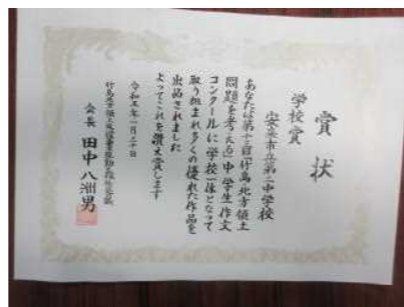 賞状
学校賞
安来市立第二中学校
あなたは第十三回「竹島地方領土
問題を考える」中学生作文
コンクールに学校一体となって
取り組まれ多くの優れた作品を
出品されました
よってこれを讃え賞します
令和三年一月三十日
会長 田中八洲男